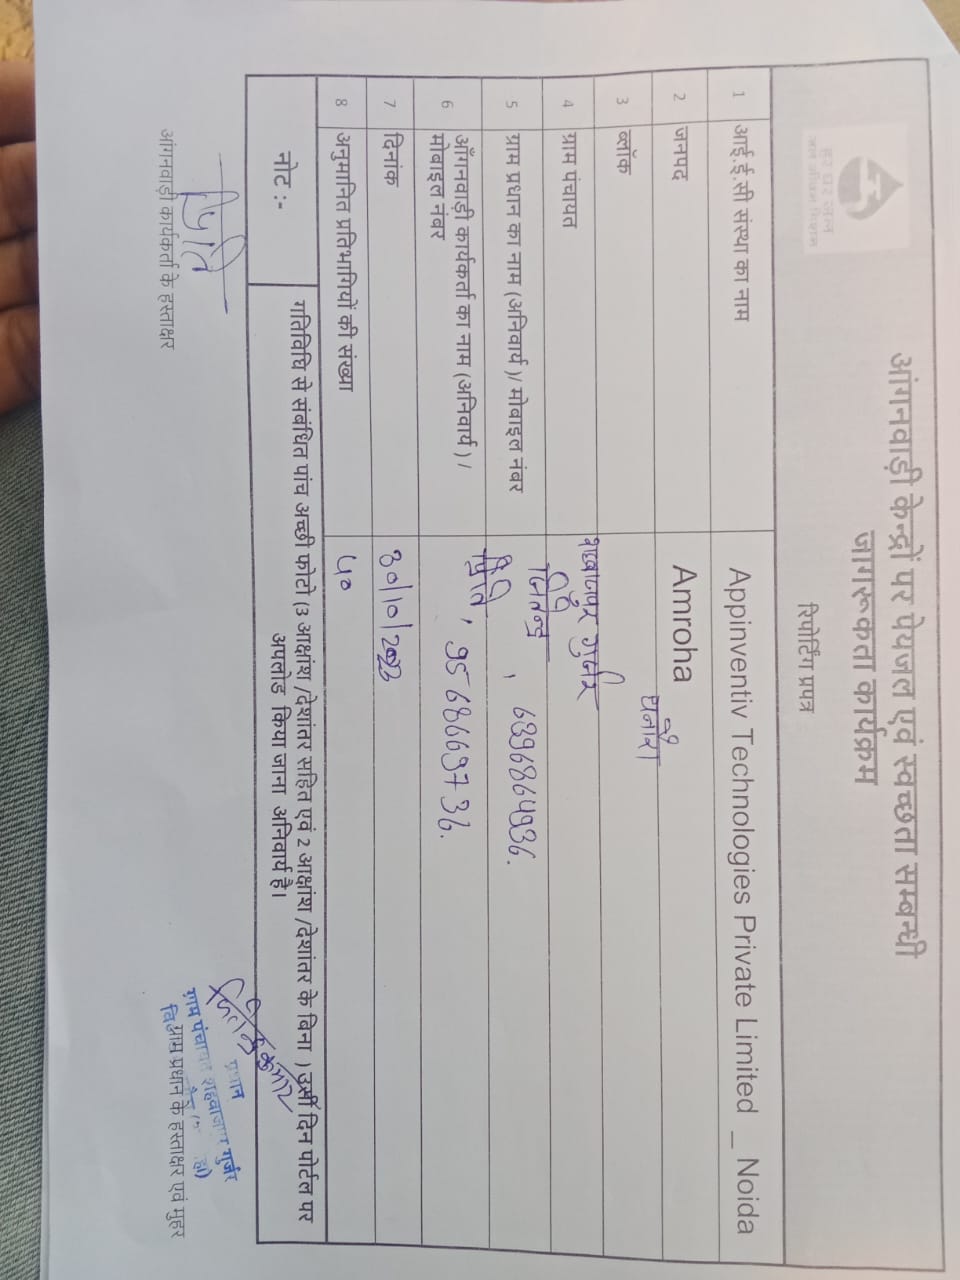 हर घर जल
जल जीवन मिशन
आंगनवाड़ी केन्द्रों पर पेयजल एवं स्वच्छता सम्बन्धी
जागरूकता कार्यक्रम
रिपोर्टिंग प्रपत्र
1 आई.ई.सी संस्था का नाम Appinventiv Technologies Private Limited _ Noida
2 जनपद Amroha
3 ब्लॉक धनौरा
4 ग्राम पंचायत गुर्जर
5 ग्राम प्रधान का नाम (अनिवार्य )/ मोबाइल नंबर जितेन्द्र , 6396864936.
6 आँगनवाड़ी कार्यकर्ता का नाम (अनिवार्य ) /
मोबाइल नंबर , 9568669736.
7 दिनांक 30/10/2023
8 अनुमानित प्रतिभागियों की संख्या 50
नोट :- गतिविधि से संबंधित पांच अच्छी फोटो (3 आक्षांश /देशांतर सहित एवं 2 आक्षांश /देशांतर के बिना ) उसी दिन पोर्टल पर
अपलोड किया जाना अनिवार्य है।
कुमार
प्रधान
ग्राम पंचायत गुर्जर
आंगनवाड़ी कार्यकर्ता के हस्ताक्षर ग्राम प्रधान के हस्ताक्षर एवं मुहर